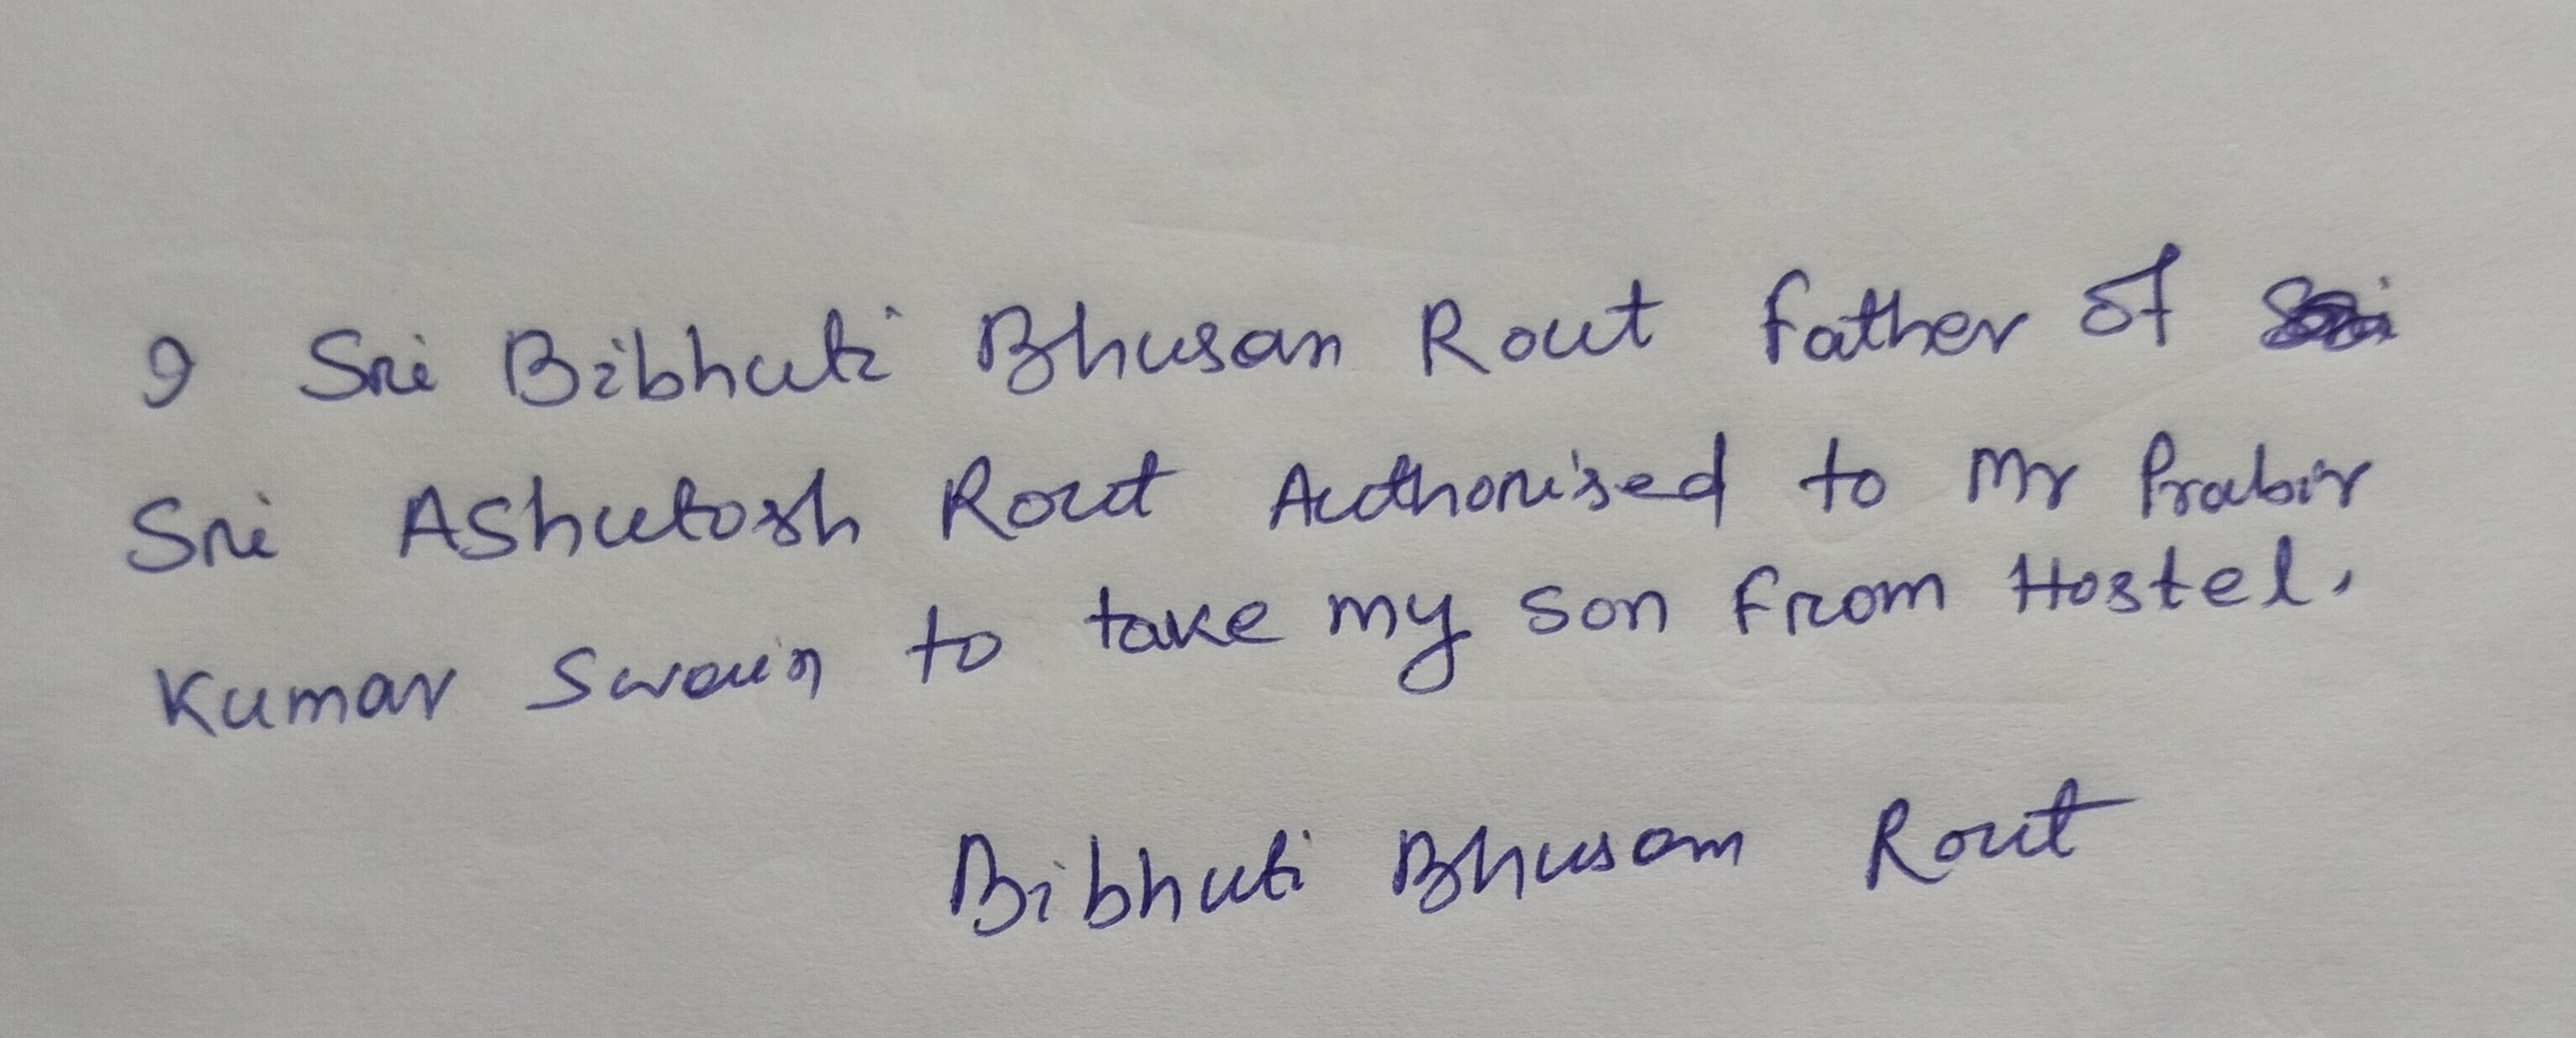 I Sri Bibhuti Bhusan Rout father of
Sri Ashutosh Rout Authorised to Mr Prabir
Kumar Swain to take my son from Hostel.
Bibhuti Bhusan Rout